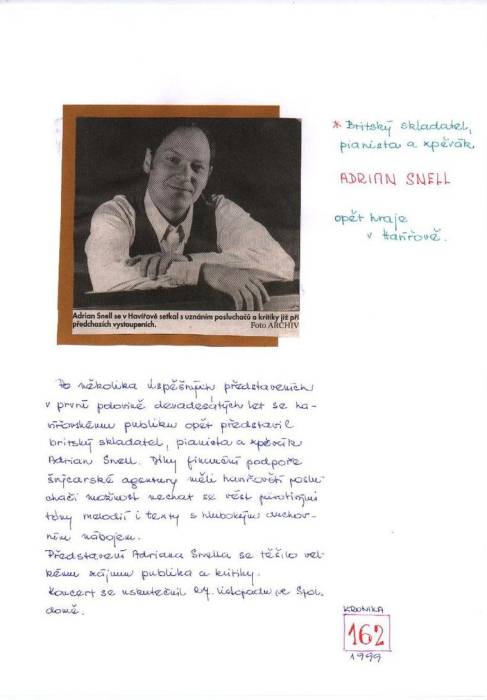 * Britský skladatel,
pianista a zpěvák
ADRIAN SNELL
opět hraje
v Havířově.
Adrian Snell se v Havířově setkal s uznáním posluchačů a kritiky již při
předchozích vystoupeních.
Foto ARCHIV
Po několika úspěšných představeních
v první polovině devadesátých let se ha-
vířovskému publiku opět představil
britský skladatel, pianista a zpěvák
Adrian Snell. Díky finanční podpoře
švýcarské agentury měli havířovští poslu-
chači možnost nechat se vést
tóny melodií i texty s hlubokým duchov-
ním nábojem.
Představení Adriana Snella se těšilo vel-
kému zájmu publika a kritiky.
Koncert se uskutečnil 27. listopadu ve Spol.
domě.
KRONIKA
162
1999